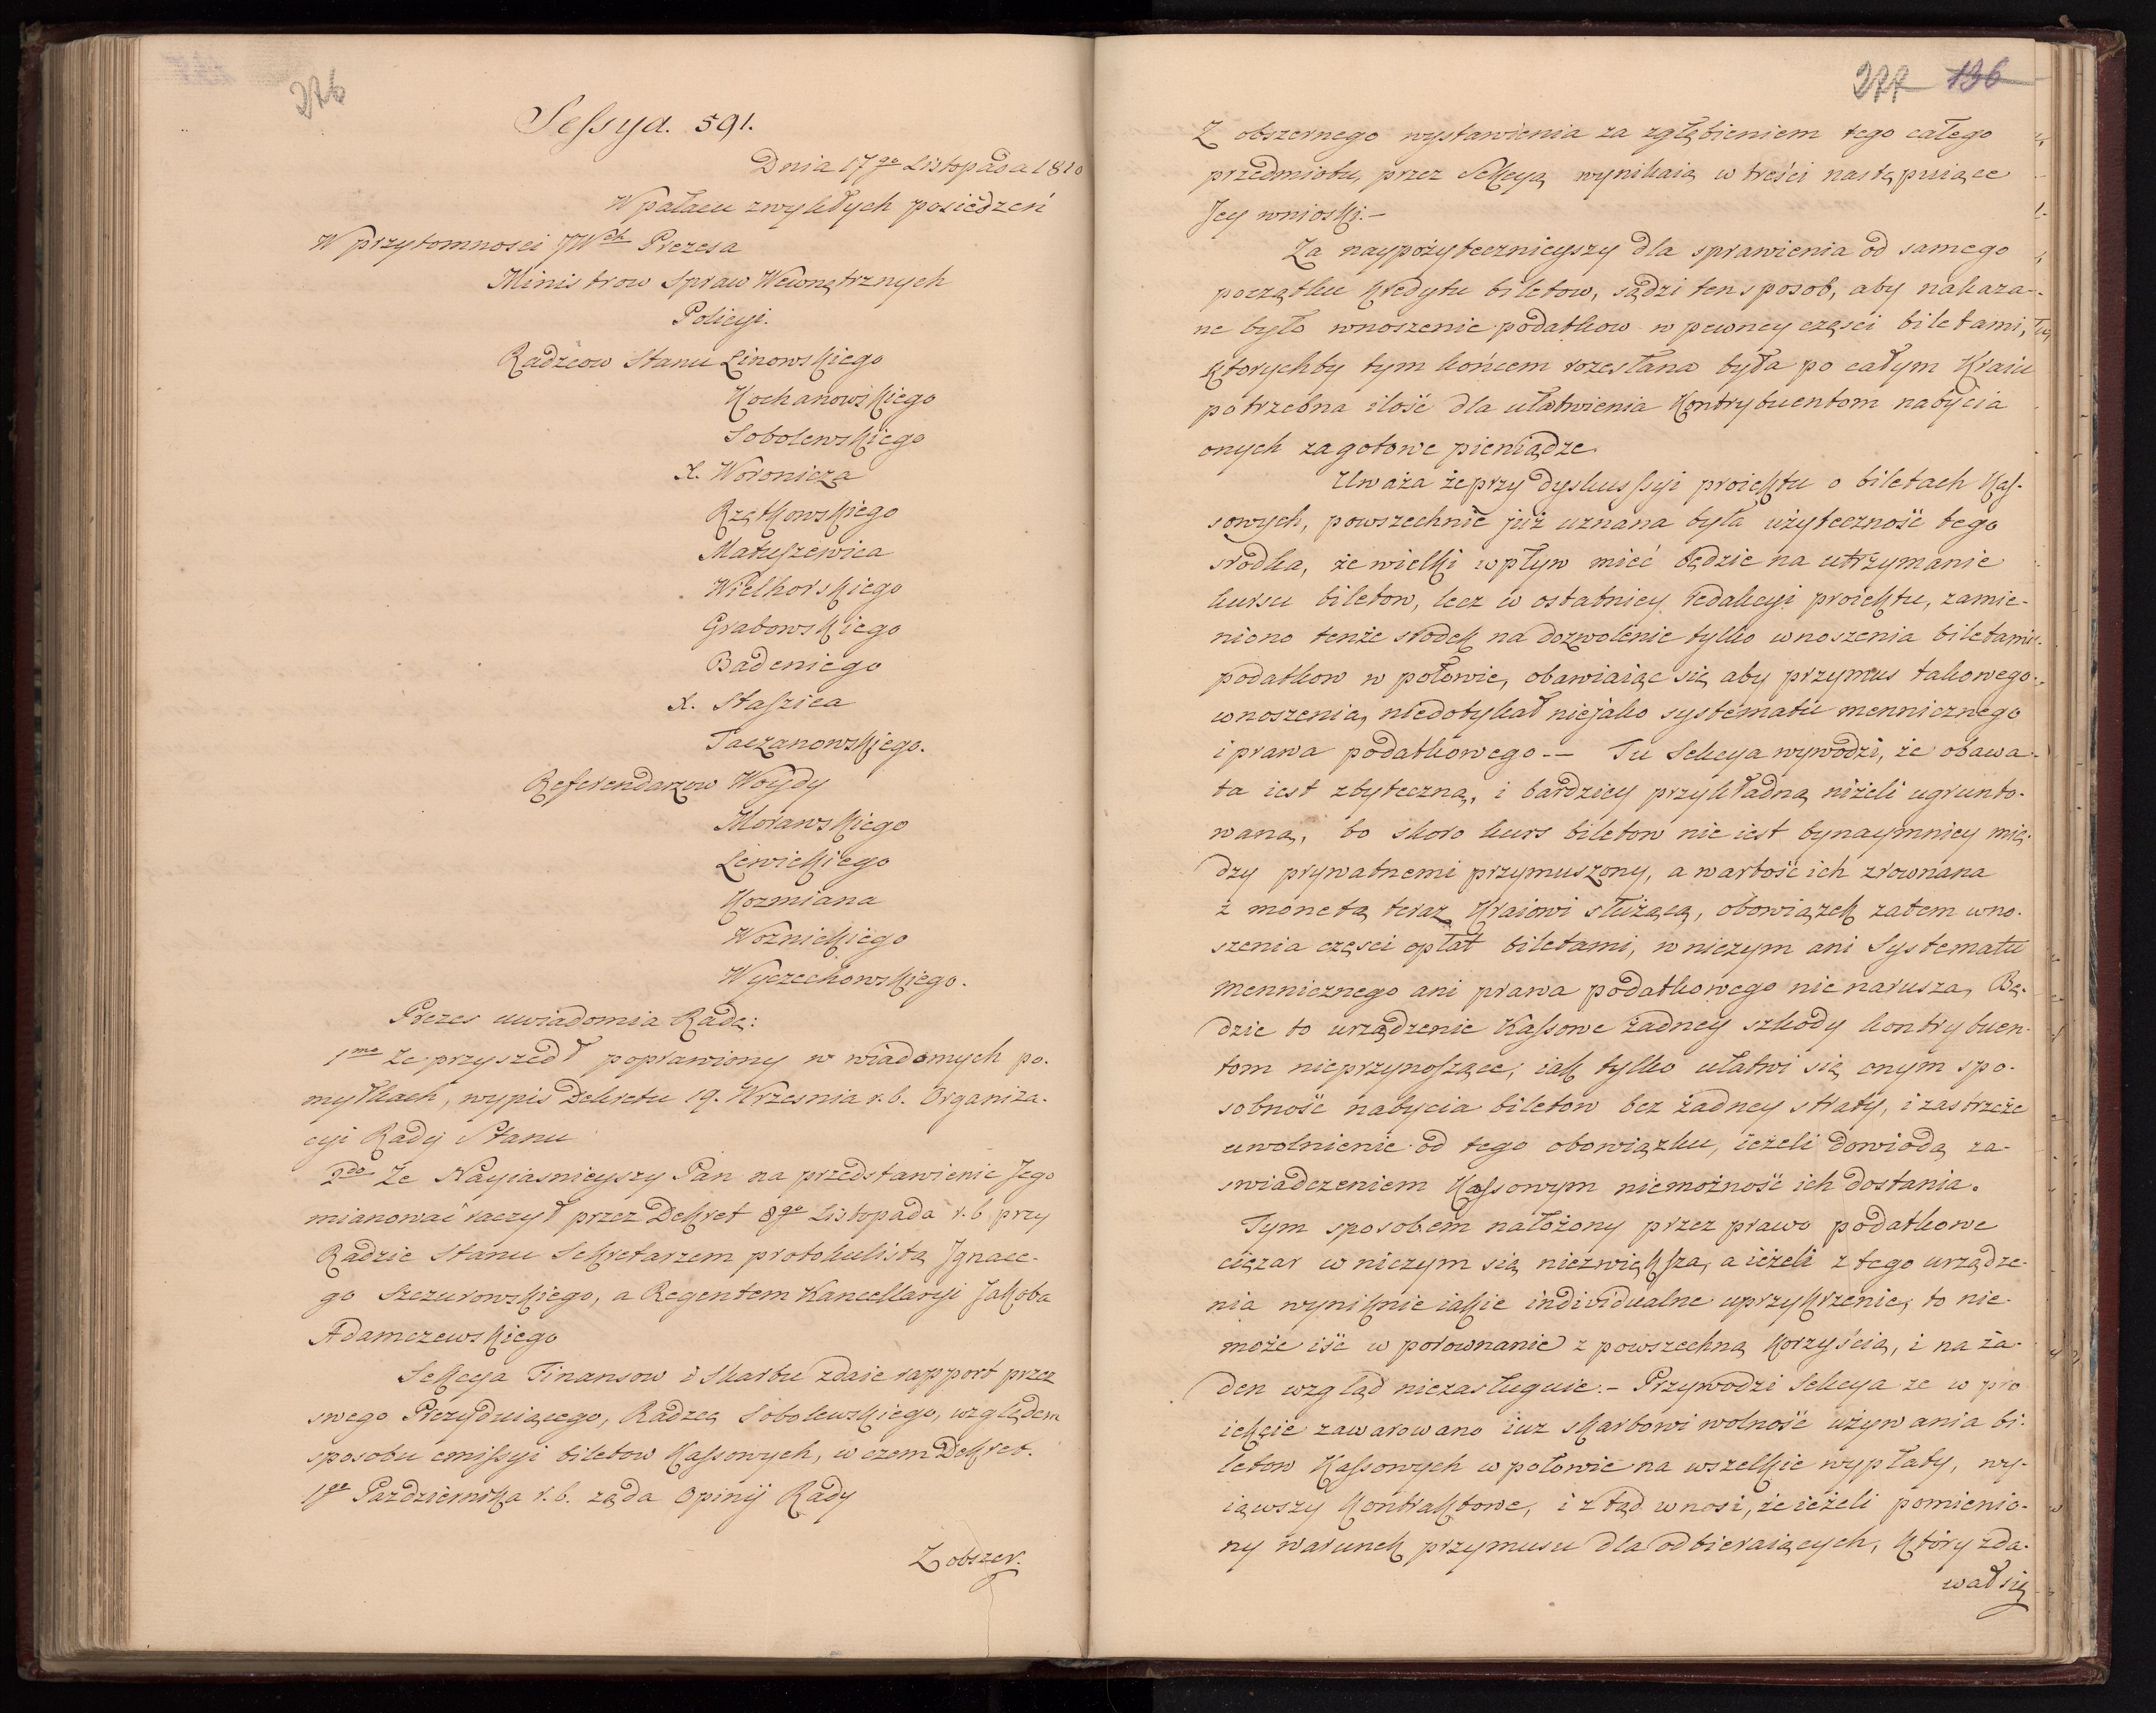 276
Sessya. 591.
Dnia 17go Listopada 1810
W pałacu zwykłych posiedzeń
W przytomnosci JWch Prezesa
Ministrow Spraw Wewnętrznych
Policyi.
Radzcow Stanu Linowskiego
Kochanowskiego
Sobolewskiego
X. Woronicza
Rzętkowskiego
Matuszewica
Wielhorskiego
Grabowskiego
Badeniego
X. Staszica
Taczanowskiego.
Referendarzow Woydy
Morawskiego
Lewickiego
Kozmiana
Woznickiego
Wyczechowskiego.
Prezes uwiadomia Radę:
1mo Ze przyszedł poprawiony w wiadomych po-
myłkach, wypis Dekretu 19. Wrzesnia r. b. Organiza-
cyi Rady Stanu
2do Ze Nayiasnieyszy Pan na przedstawienie Jego
mianować raczył przez Dekret 8go Listopada r. b. przy
Radzie Stanu Sekretarzem protokulistą Ignace-
go Szczurowskiego, a Regentem Kancellaryi Jakoba
Adamczewskiego
Sekcya Finansow i Skarbu zdaie rapport przez
swego Prezyduiącego, Radzcę Sobolewskiego, względem
sposobu emissyi biletow Kassowych, w czem Dekret.
1go Pazdziernika r. b. ząda Opinij Rady
Z obszer.
277 136
Z obszernego wystawienia za zgłębieniem tego całego
przedmiotu, przez Sekcyą wynikaią w treści następuiące
Jey wnioski.-
Za naypożytecznieyszy dla sprawienia od samego
początku Kredytu biletow, sądzi ten sposob, aby nakaza-
ne było wnoszenie podatkow w pewney części biletami,
Ktorychby tym końcem rozesłana była po całym Kraiu
potrzebna ilość dla ułatwienia Kontrybuentom nabycia
onych za gotowe pieniądze.
Uważa że przy dyskussyi proiektu o biletach Kas-
sowych, powszechnie już uznana była użyteczność tego
srodka, że wielki wpływ mieć będzie na utrzymanie
kursu biletow, lecz w ostatniey redakcyi proiektu, zamie-
niono tenże srodek na dozwolenie tylko wnoszenia biletami
podatkow w połowie, obawiaiąc się aby przymus takowego
wnoszenia, niedotykał niejako systematu mennicznego
i prawa podatkowego -- Tu Sekcya wywodzi, że obawa
ta iest zbyteczną, i bardziey przykładną niżeli ugrunto-
waną, bo skoro kurs biletow nie iest bynaymniey mię-
dzy prywatnemi przymuszony, a wartość ich zrownana
z monetą teraz Kraiowi służącą, obowiązek zatem wno-
szenia części opłat biletami, w niczym ani Systematu
mennicznego ani prawa podatkowego nie narusza, Bę-
dzie to urządzenie Kassowe żadney szkody kontrybuen-
tom nieprzynoszące, iak tylko ułatwi się onym spo-
sobność nabycia biletow bez żadney straty, i zastrzeże
uwolnienie od tego obowiązku, ieżeli dowiodą za-
swiadczeniem Kassowym niemożność ich dostania.
Tym sposobem nałożony przez prawo podatkowe
ciężar w niczym się niezwiększa, a ieżeli z tego urządze-
nia wyniknie iakie individualne uprzykrzenie, to nie
może iść w porownanie z powszechną korzyścią, i na ża-
den wzgląd niezasługuie.- Przywodzi Sekcya ze w pro
iekcie zawarowano iuz skarbowi wolność używania bi-
letow Kassowych w połowie na wszelkie wypłaty, wy-
iąwszy Kontraktowe, i ztąd wnosi, że ieżeli pomienio-
ny warunek przymusu dla odbieraiących, Który zda-
wał się